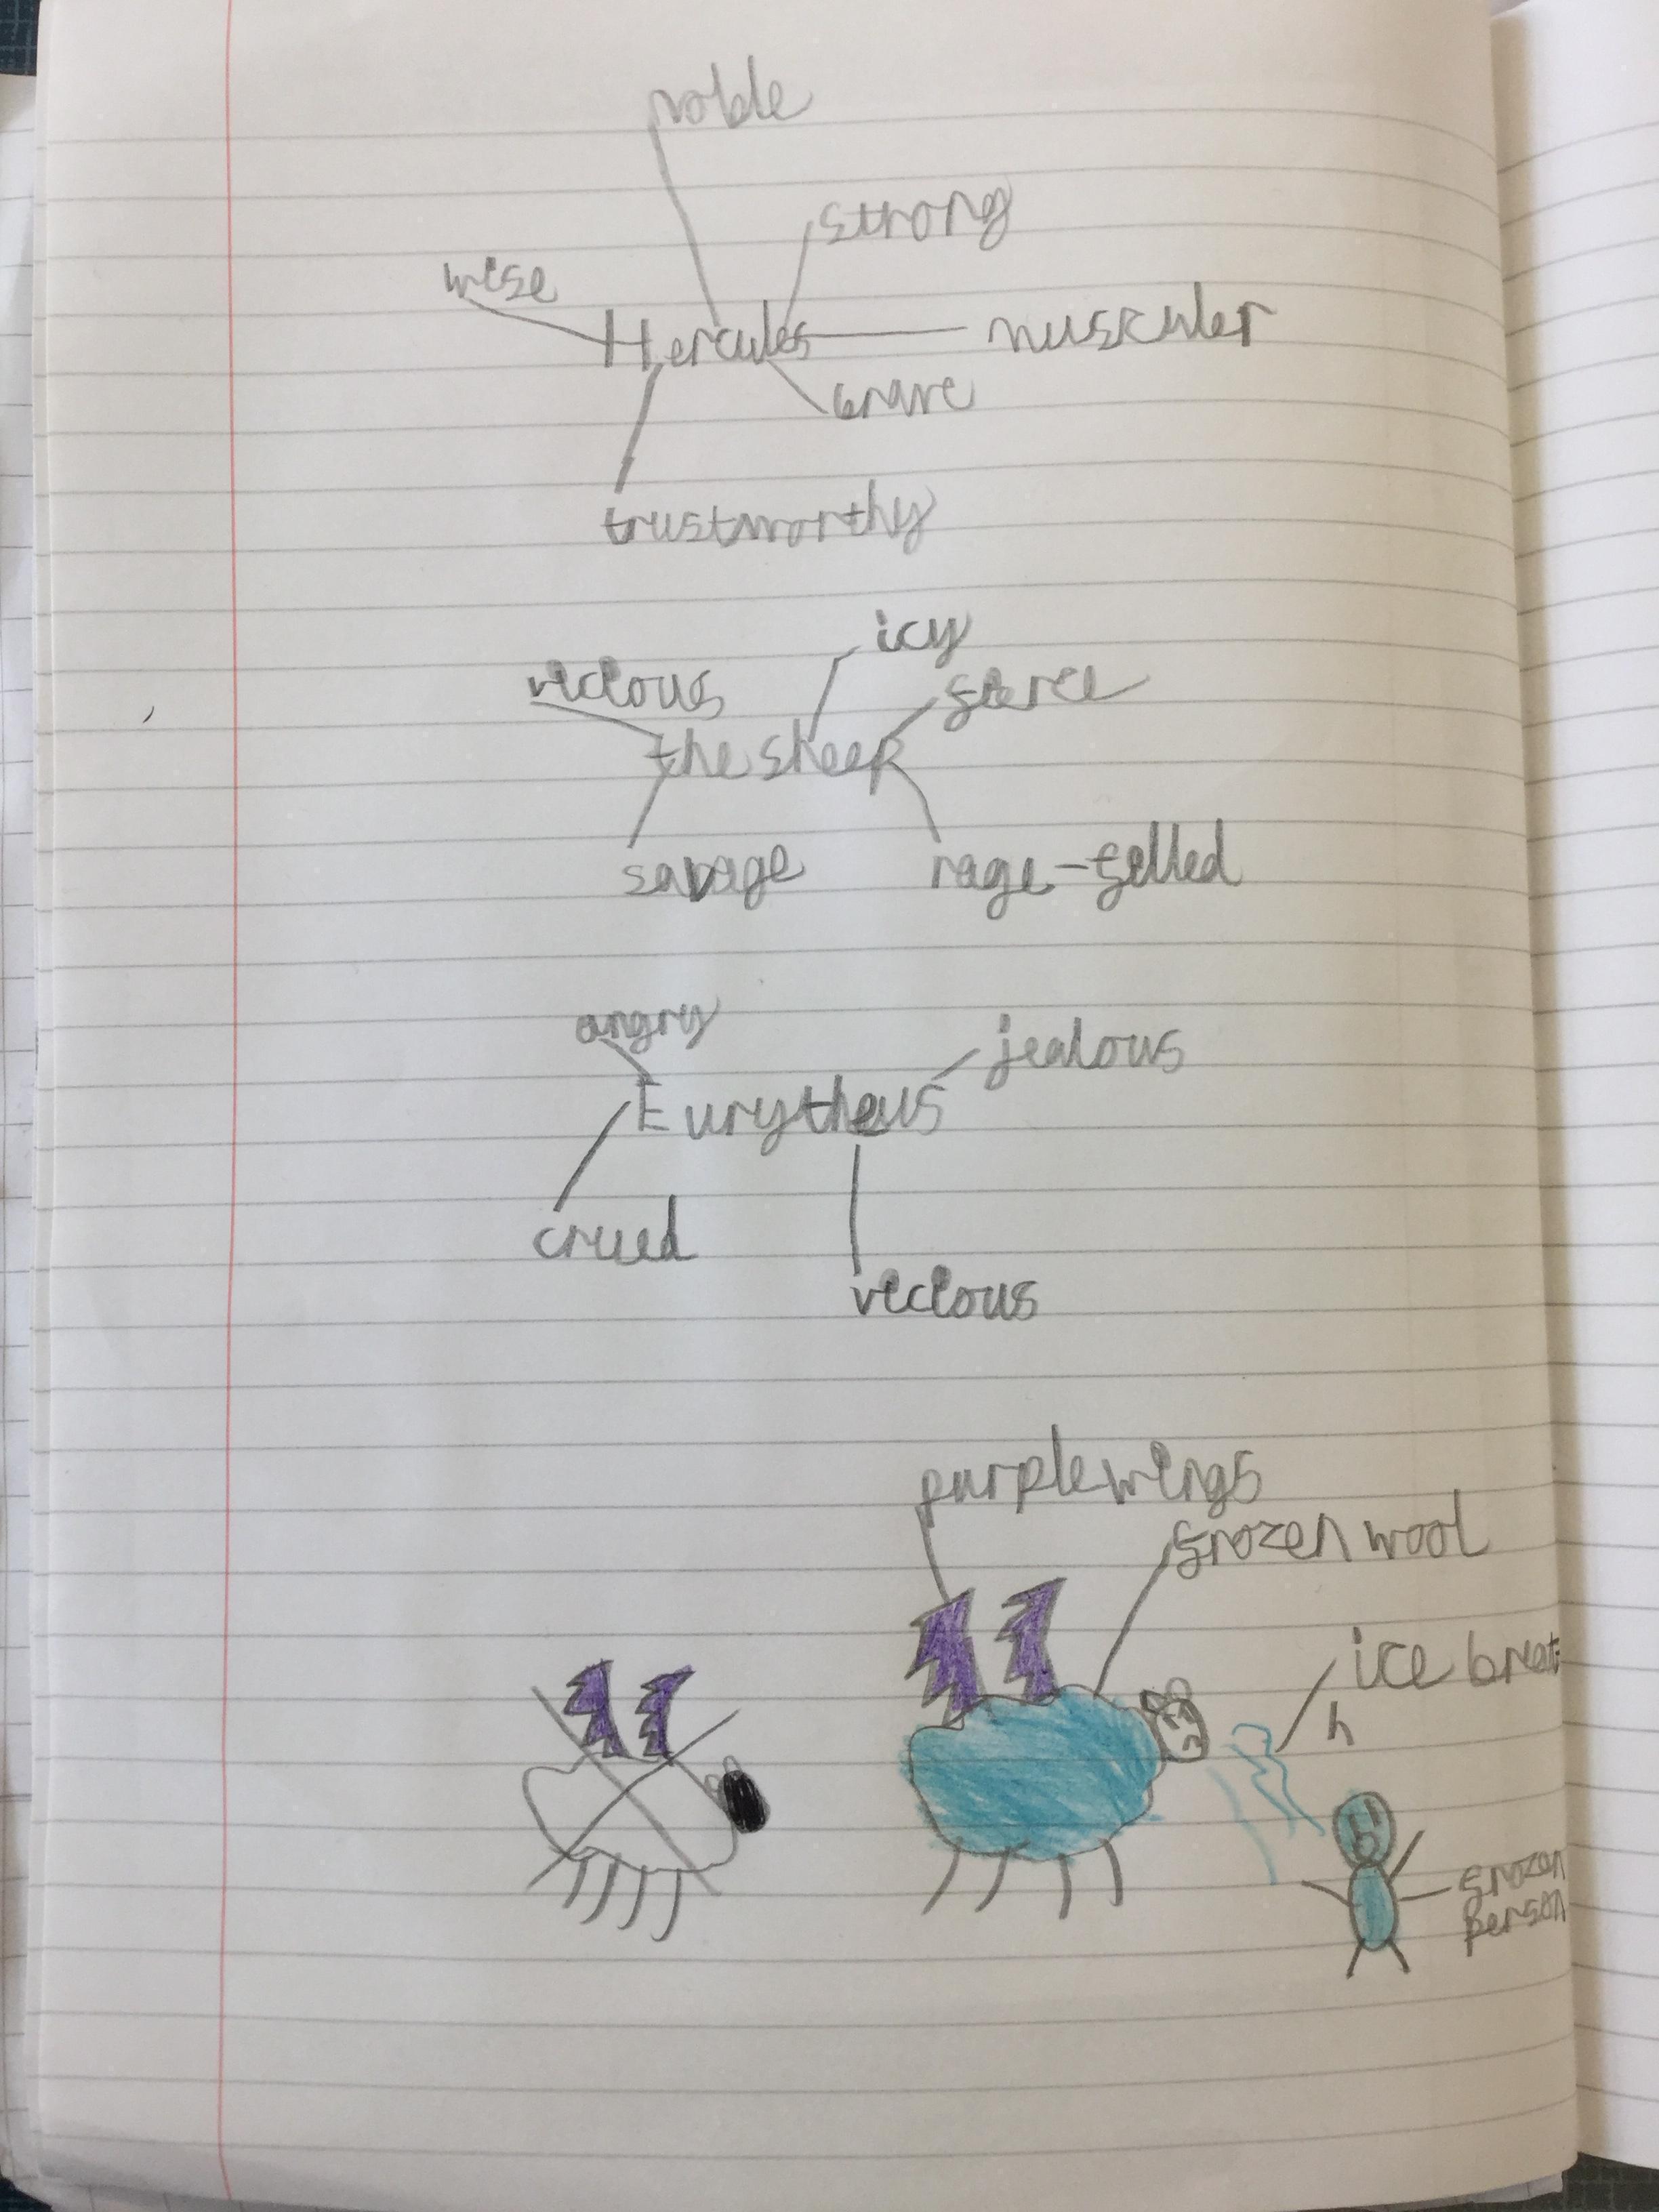 noble
strong
wise
Hercules
muscular
brave
trustworthy
icy
vicious
fierce
the sheep
savage
rage-filled
angry
jealous
Eurytheus
crued
vicious
purple wings
frozen wool
ice breat
h
frozen
person